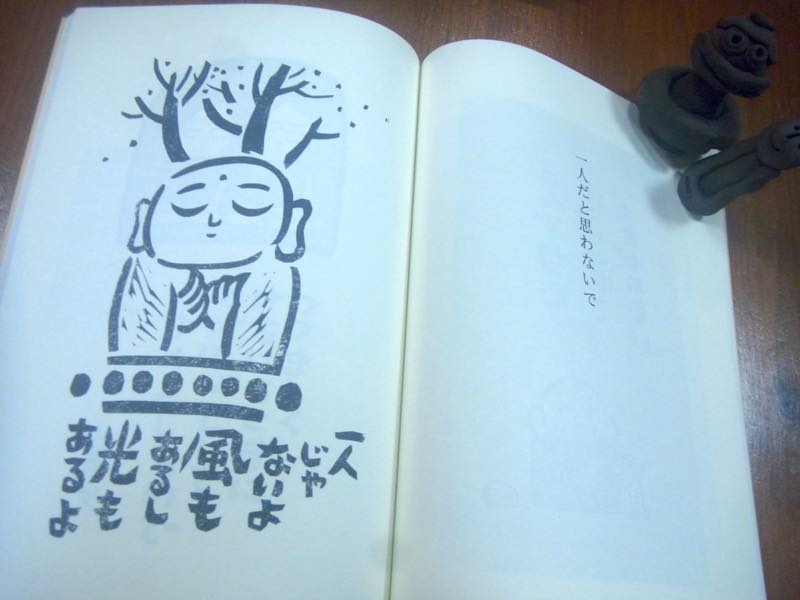 一人だと思わないで
一人
じゃ
ないよ
風も
あるし
光も
あるよ